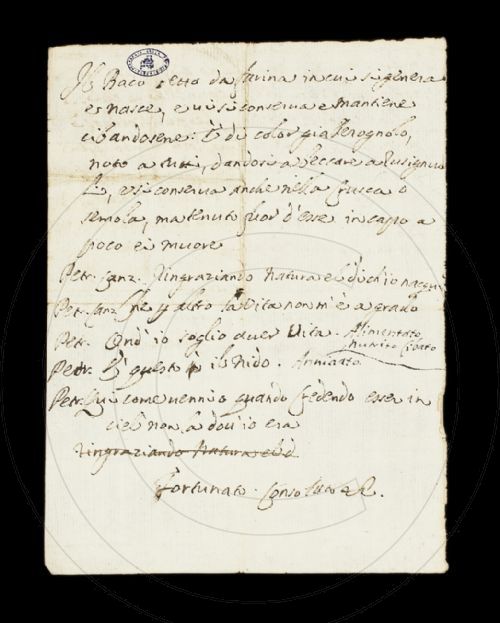 Il Baco detto da farina in cui si genera
e nasce, e vi si conserva e mantiene
cibandosene: È di color giallerognolo,
noto a tutti, dandosi a beccare a Rusignuo
li, e si conserva anche nella crusca o
semola, ma tenuto fuor d'esse in capo a
poco ei muore
Petr. Canz. Ringraziando Natura e'l dì ch'io nacqui
Petr. Canz. Nè p altro la Vita non m'è a grado
Petr. Ond' io soglio aver Vita. Alimentato
nutrito Cibato
Petr. E questo è il Nido. Annidato
Petr. Qui come venni o quando Credendo esser in
ciel non là dov'io era
Ringraziando Natura e'l d
Fortunato. Consolato &.